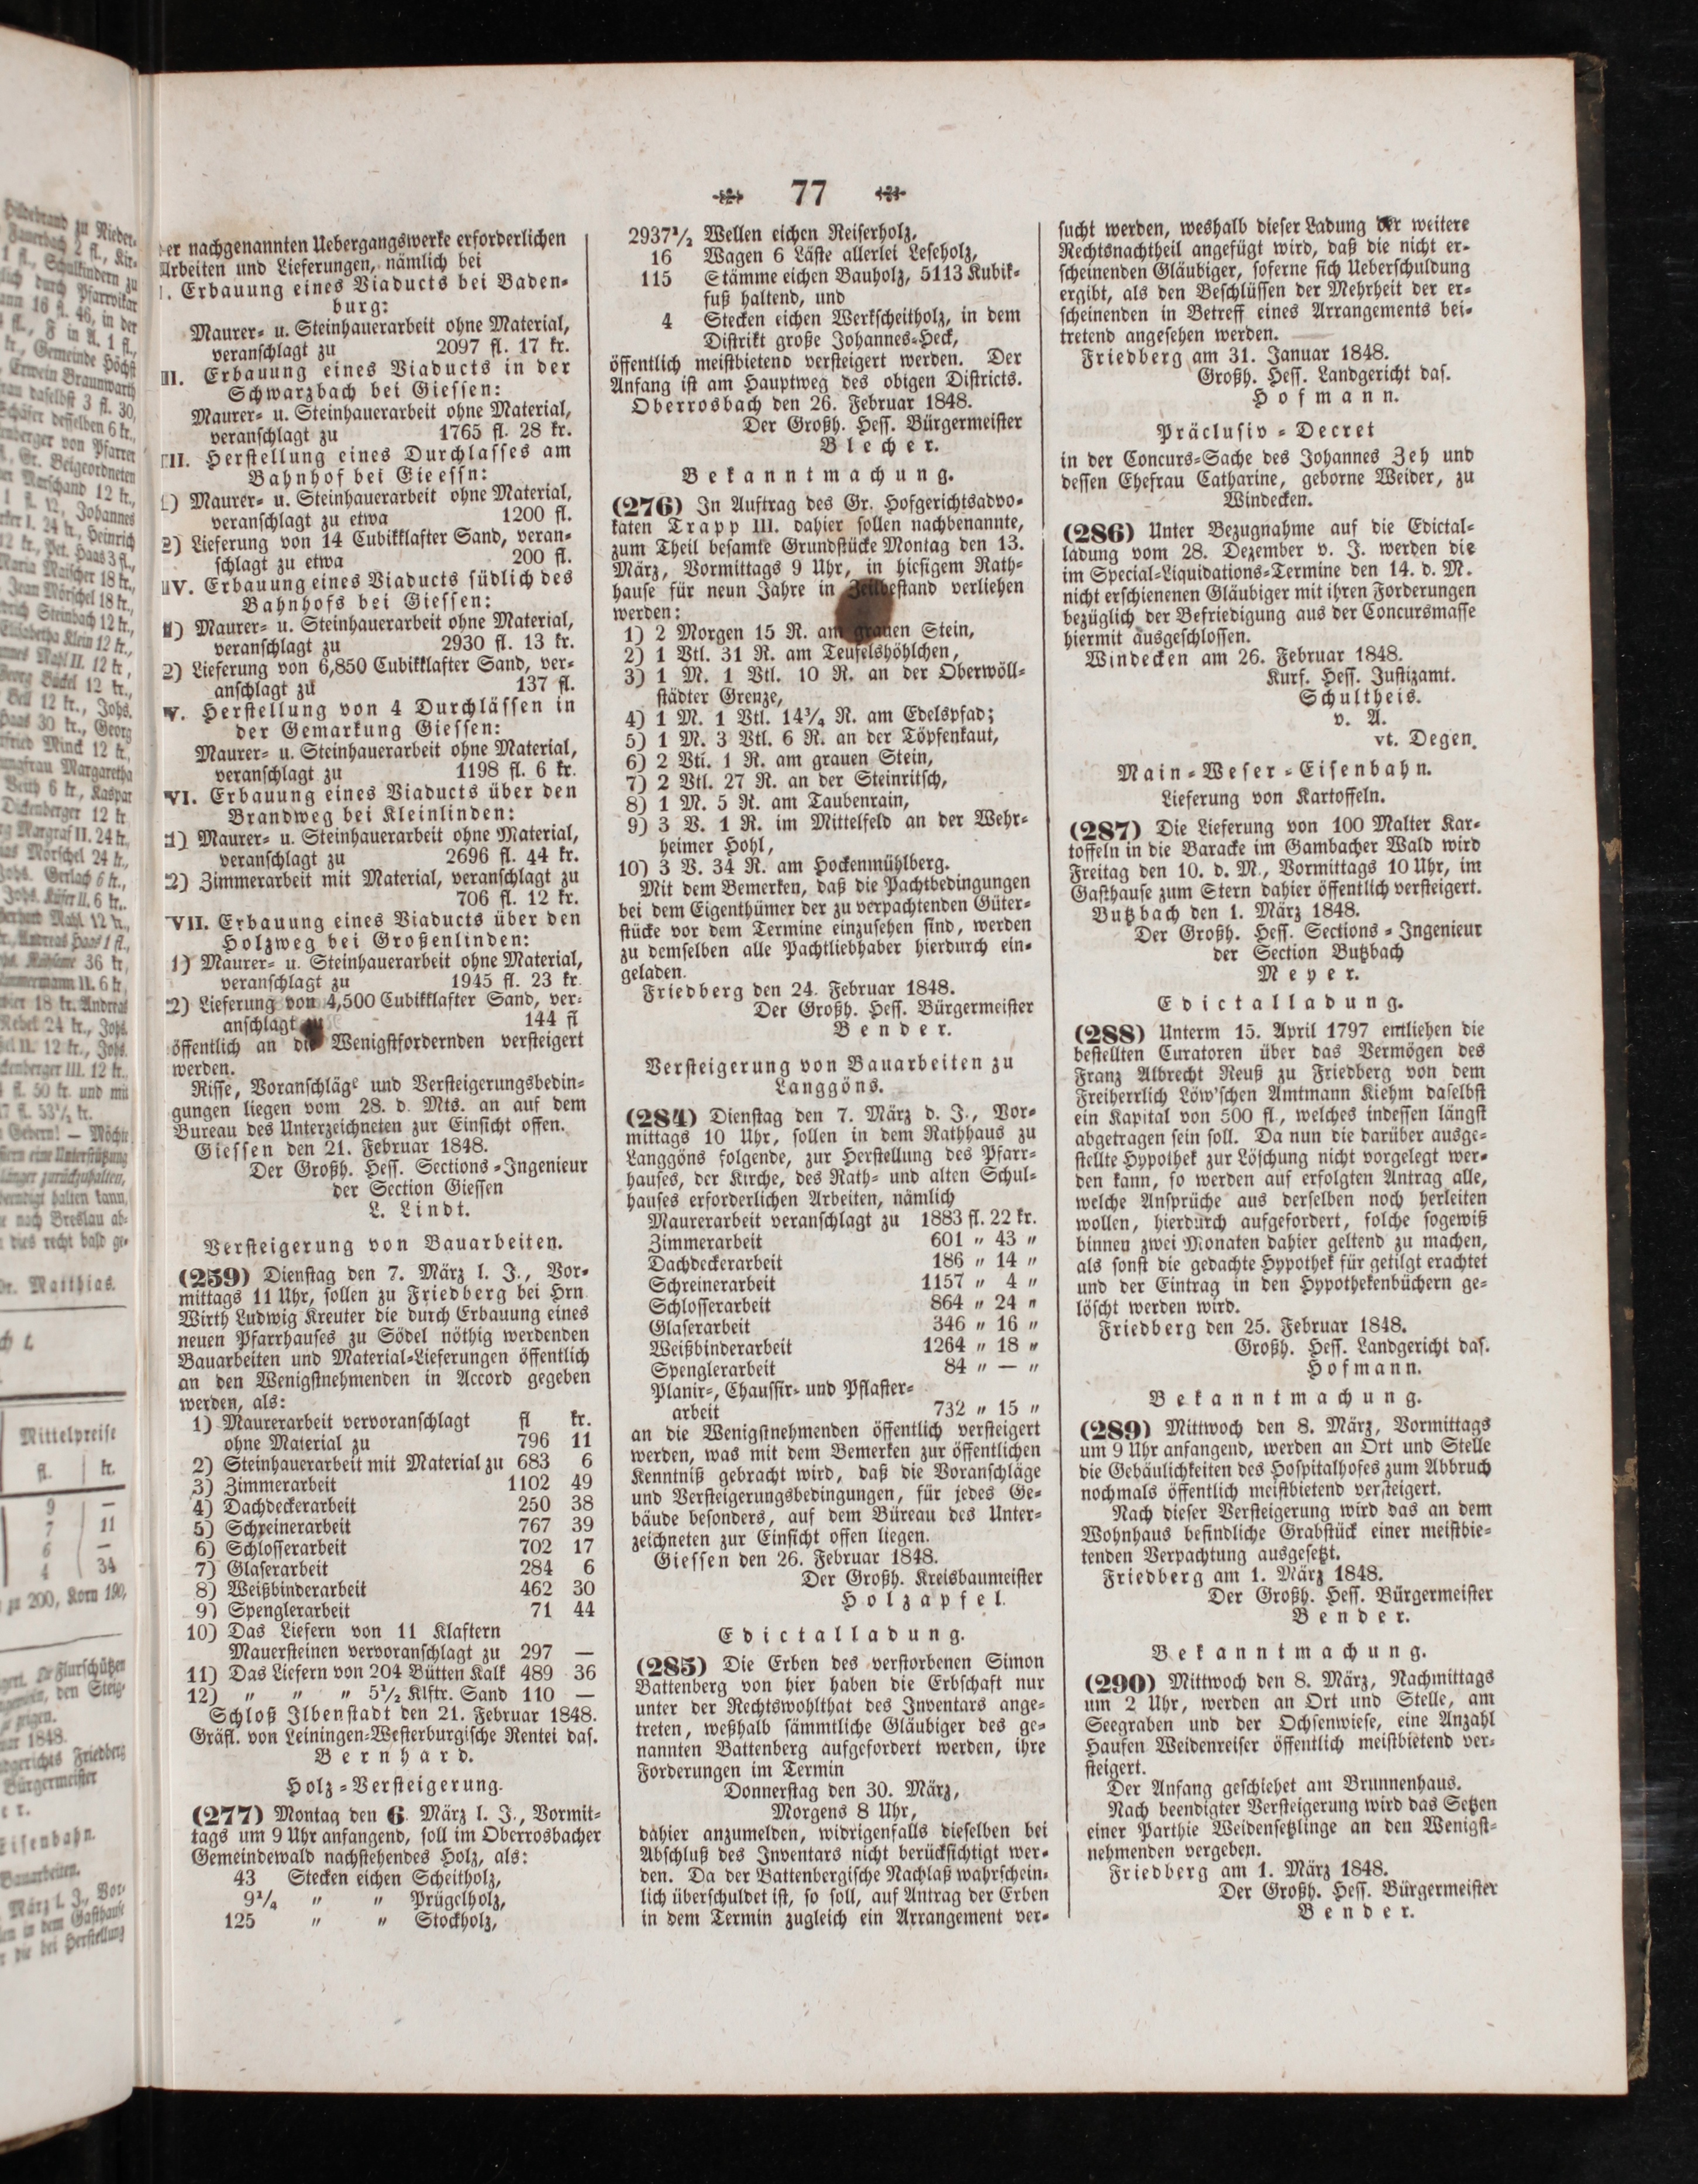 77
er nachgenannten Uebergangswerke erforderlichen
Arbeiten und Lieferungen, nämlich bei
I. Erbauung eines Viaducts bei Baden-
burg:
Maurer- u. Steinhauerarbeit ohne Material,
veranschlagt zu 2097 fl. 17 kr.
II. Erbauung eines Viaducts in der
Schwarzbach bei Giessen:
Maurer- u. Steinhauerarbeit ohne Material,
veranschlagt zu 1765 fl. 28 kr.
III. Herstellung eines Durchlasses am
Bahnhof bei Gieessn:
1) Maurer- u. Steinhauerarbeit ohne Material,
veranschlagt zu etwa 1200 fl.
2) Lieferung von 14 Cubikklafter Sand, veran-
schlagt zu etwa 200 fl.
IV. Erbauung eines Viaducts südlich des
Bahnhofs bei Giessen:
1) Maurer- u. Steinhauerarbeit ohne Material,
veranschlagt zu 2930 fl. 13 kr.
2) Lieferung von 6,850 Cubikklafter Sand, ver-
anschlagt zu 137 fl.
V. Herstellung von 4 Durchlässen in
der Gemarkung Giessen:
Maurer- u. Steinhauerarbeit ohne Material,
veranschlagt zu 1198 fl. 6 kr.
VI. Erbauung eines Viaducts über den
Brandweg bei Kleinlinden:
1) Maurer- u. Steinhauerarbeit ohne Material,
veranschlagt zu 2696 fl. 44 kr.
2) Zimmerarbeit mit Material, veranschlagt zu
706 fl. 12 kr.
VII. Erbauung eines Viaducts über den
Holzweg bei Großenlinden:
1) Maurer- u. Steinhauerarbeit ohne Material,
veranschlagt zu 1945 fl. 23 kr.
2) Lieferung von 4,500 Cubikklafter Sand, ver-
anschlagt zu 144 fl
öffentlich an die Wenigstfordernden versteigert
werden.
Risse, Voranschläge und Versteigerungsbedin-
gungen liegen vom 28. d. Mts. an auf dem
Bureau des Unterzeichneten zur Einsicht offen.
Giessen den 21. Februar 1848.
Der Großh. Hess. Sections-Ingenieur
der Section Giessen
L. Lindt.
Versteigerung von Bauarbeiten.
(259) Dienstag den 7. März l. J., Vor-
mittags 11 Uhr, sollen zu Friedberg bei Hrn
Wirth Ludwig Kreuter die durch Erbauung eines
neuen Pfarrhauses zu Södel nöthig werdenden
Bauarbeiten und Material-Lieferungen öffentlich
an den Wenigstnehmenden in Accord gegeben
werden, als:
1) Maurerarbeit vervoranschlagt fl kr.
ohne Material zu 796 11
2) Steinhauerarbeit mit Material zu 683 6
3) Zimmerarbeit 1102 49
4) Dachdeckerarbeit 250 38
5) Schreinerarbeit 767 39
6) Schlosserarbeit 702 17
7) Glaserarbeit 284 6
8) Weißbinderarbeit 462 30
9) Spenglerarbeit 71 44
10) Das Liefern von 11 Klaftern
Mauersteinen vervoranschlagt zu 297 —
11) Das Liefern von 204 Bütten Kalk 489 36
12) " " " 5½ Klftr. Sand 110 —
Schloß Ilbenstadt den 21. Februar 1848.
Gräfl. von Leiningen-Westerburgische Rentei das.
Bernhard.
Holz-Versteigerung.
(277) Montag den 6 März l. J., Vormit-
tags um 9 Uhr anfangend, soll im Oberrosbacher
Gemeindewald nachstehendes Holz, als:
43 Stecken eichen Scheitholz,
9¼ " " Prügelholz,
125 " " Stockholz,
2937½ Wellen eichen Reiserholz,
16 Wagen 6 Läste allerlei Leseholz,
115 Stämme eichen Bauholz, 5113 Kubik-
fuß haltend, und
4 Stecken eichen Werkscheitholz, in dem
Distrikt große Johannes-Heck,
öffentlich meistbietend versteigert werden. Der
Anfang ist am Hauptweg des obigen Districts.
Oberrosbach den 26. Februar 1848.
Der Großh. Hess. Bürgermeister
Blecher.
Bekanntmachung.
(276) In Auftrag des Gr. Hofgerichtsadvo-
katen Trapp III. dahier sollen nachbenannte,
zum Theil besamte Grundstücke Montag den 13.
März, Vormittags 9 Uhr, in hiesigem Rath-
hause für neun Jahre in Zeitbestand verliehen
werden:
1) 2 Morgen 15 R. am grauen Stein,
2) 1 Vtl. 31 R. am Teufelshöhlchen,
3) 1 M. 1 Vtl. 10 R. an der Oberwöll-
städter Grenze,
4) 1 M. 1 Vtl. 14¾ R. am Edelspfad;
5) 1 M. 3 Vtl. 6 R. an der Töpfenkaut,
6) 2 Vtl. 1 R. am grauen Stein,
7) 2 Vtl. 27 R. an der Steinritsch,
8) 1 M. 5 R. am Taubenrain,
9) 3 V. 1 R. im Mittelfeld an der Wehr-
heimer Hohl,
10) 3 V. 34 R. am Hockenmühlberg.
Mit dem Bemerken, daß die Pachtbedingungen
bei dem Eigenthümer der zu verpachtenden Güter-
stücke vor dem Termine einzusehen sind, werden
zu demselben alle Pachtliebhaber hierdurch ein-
geladen.
Friedberg den 24. Februar 1848.
Der Großh. Hess. Bürgermeister
Bender.
Versteigerung von Bauarbeiten zu
Langgöns.
(284) Dienstag den 7. März d. J., Vor-
mittags 10 Uhr, sollen in dem Rathhaus zu
Langgöns folgende, zur Herstellung des Pfarr-
hauses, der Kirche, des Rath- und alten Schul-
hauses erforderlichen Arbeiten, nämlich
Maurerarbeit veranschlagt zu 1883 fl. 22 kr.
Zimmerarbeit 601 " 43 "
Dachdeckerarbeit 186 " 14 "
Schreinerarbeit 1157 " 4 "
Schlosserarbeit 864 " 24 "
Glaserarbeit 346 " 16 "
Weißbinderarbeit 1264 " 18 "
Spenglerarbeit 84 " — "
Planir-, Chaussir- und Pflaster-
arbeit 732 " 15 "
an die Wenigstnehmenden öffentlich versteigert
werden, was mit dem Bemerken zur öffentlichen
Kenntniß gebracht wird, daß die Voranschläge
und Versteigerungsbedingungen, für jedes Ge-
bäude besonders, auf dem Büreau des Unter-
zeichneten zur Einsicht offen liegen.
Giessen den 26. Februar 1848.
Der Großh. Kreisbaumeister
Holzapfel.
Edictalladung.
(285) Die Erben des verstorbenen Simon
Battenberg von hier haben die Erbschaft nur
unter der Rechtswohlthat des Inventars ange-
treten, weßhalb sämmtliche Gläubiger des ge-
nannten Battenberg aufgefordert werden, ihre
Forderungen im Termin
Donnerstag den 30. März,
Morgens 8 Uhr,
dahier anzumelden, widrigenfalls dieselben bei
Abschluß des Inventars nicht berücksichtigt wer-
den. Da der Battenbergische Nachlaß wahrschein-
lich überschuldet ist, so soll, auf Antrag der Erben
in dem Termin zugleich ein Arrangement ver-
sucht werden, weshalb dieser Ladung der weitere
Rechtsnachtheil angefügt wird, daß die nicht er-
scheinenden Gläubiger, soferne sich Ueberschuldung
ergibt, als den Beschlüssen der Mehrheit der er-
scheinenden in Betreff eines Arrangements bei-
tretend angesehen werden.
Friedberg am 31. Januar 1848.
Großh. Hess. Landgericht das.
Hofmann.
Präclusiv-Decret
in der Concurs-Sache des Johannes Zeh und
dessen Ehefrau Catharine, geborne Weider, zu
Windecken.
(286) Unter Bezugnahme auf die Edictal-
ladung vom 28. Dezember v. J. werden die
im Special-Liquidations-Termine den 14. d. M.
nicht erschienenen Gläubiger mit ihren Forderungen
bezüglich der Befriedigung aus der Concursmasse
hiermit ausgeschlossen.
Windecken am 26. Februar 1848.
Kurf. Hess. Justizamt.
Schultheis.
v. A.
vt. Degen.
Main-Weser-Eisenbahn.
Lieferung von Kartoffeln.
(287) Die Lieferung von 100 Malter Kar-
toffeln in die Baracke im Gambacher Wald wird
Freitag den 10. d. M., Vormittags 10 Uhr, im
Gasthause zum Stern dahier öffentlich versteigert.
Butzbach den 1. März 1848.
Der Großh. Hess. Sections-Ingenieur
der Section Butzbach
Meyer.
Edictalladung.
(288) Unterm 15. April 1797 entliehen die
bestellten Curatoren über das Vermögen des
Franz Albrecht Reuß zu Friedberg von dem
Freiherrlich Löw'schen Amtmann Kiehm daselbst
ein Kapital von 500 fl., welches indessen längst
abgetragen sein soll. Da nun die darüber ausge-
stellte Hypothek zur Löschung nicht vorgelegt wer-
den kann, so werden auf erfolgten Antrag alle,
welche Ansprüche aus derselben noch herleiten
wollen, hierdurch aufgefordert, solche sogewiß
binnen zwei Monaten dahier geltend zu machen,
als sonst die gedachte Hypothek für getilgt erachtet
und der Eintrag in den Hypothekenbüchern ge-
löscht werden wird.
Friedberg den 25. Februar 1848.
Großh. Hess. Landgericht das.
Hofmann.
Bekanntmachung.
(289) Mittwoch den 8. März, Vormittags
um 9 Uhr anfangend, werden an Ort und Stelle
die Gebäulichkeiten des Hospitalhofes zum Abbruch
nochmals öffentlich meistbietend versteigert.
Nach dieser Versteigerung wird das an dem
Wohnhaus befindliche Grabstück einer meistbie-
tenden Verpachtung ausgesetzt.
Friedberg am 1. März 1848.
Der Großh. Hess. Bürgermeister
Bender.
Bekanntmachung.
(290) Mittwoch den 8. März, Nachmittags
um 2 Uhr, werden an Ort und Stelle, am
Seegraben und der Ochsenwiese, eine Anzahl
Haufen Weidenreiser öffentlich meistbietend ver-
steigert.
Der Anfang geschiehet am Brunnenhaus.
Nach beendigter Versteigerung wird das Setzen
einer Parthie Weidensetzlinge an den Wenigst-
nehmenden vergeben.
Friedberg am 1. März 1848.
Der Großh. Hess. Bürgermeister
Bender.